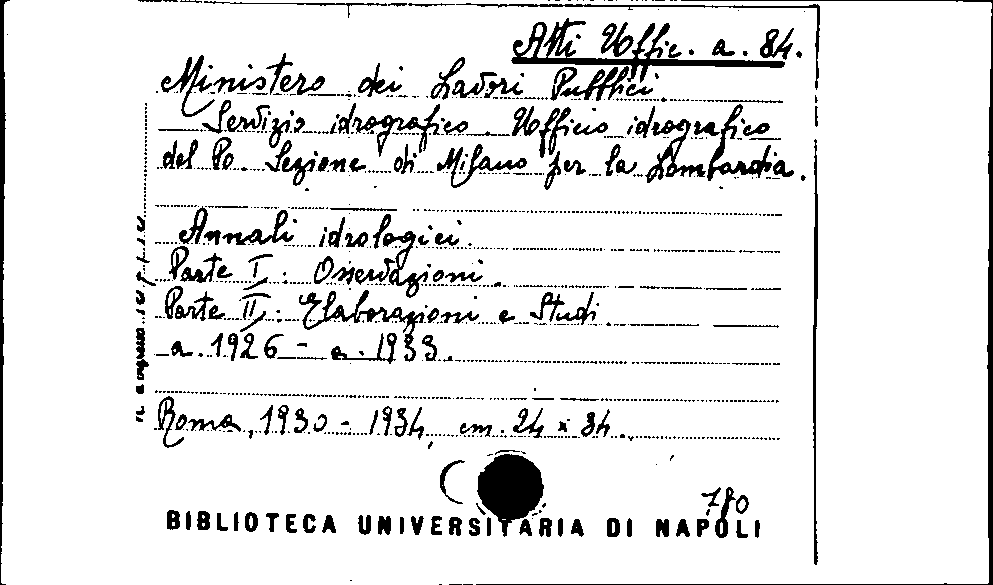 Atti Uffic. a. 84.
Ministero dei Lavori Pubblici.
Servizio idrografico. Ufficio idrografico
del Po. Sezione di Milano per la Lombardia.
Annali idrologici.
Parte I: Osservazioni.
Parte II: Elaborazioni e Studi.
a. 1926 - a. 1933.
Roma, 1930 - 1934, cm. 24 x 34.
780
BIBLIOTECA UNIVERSITARIA DI NAPOLI